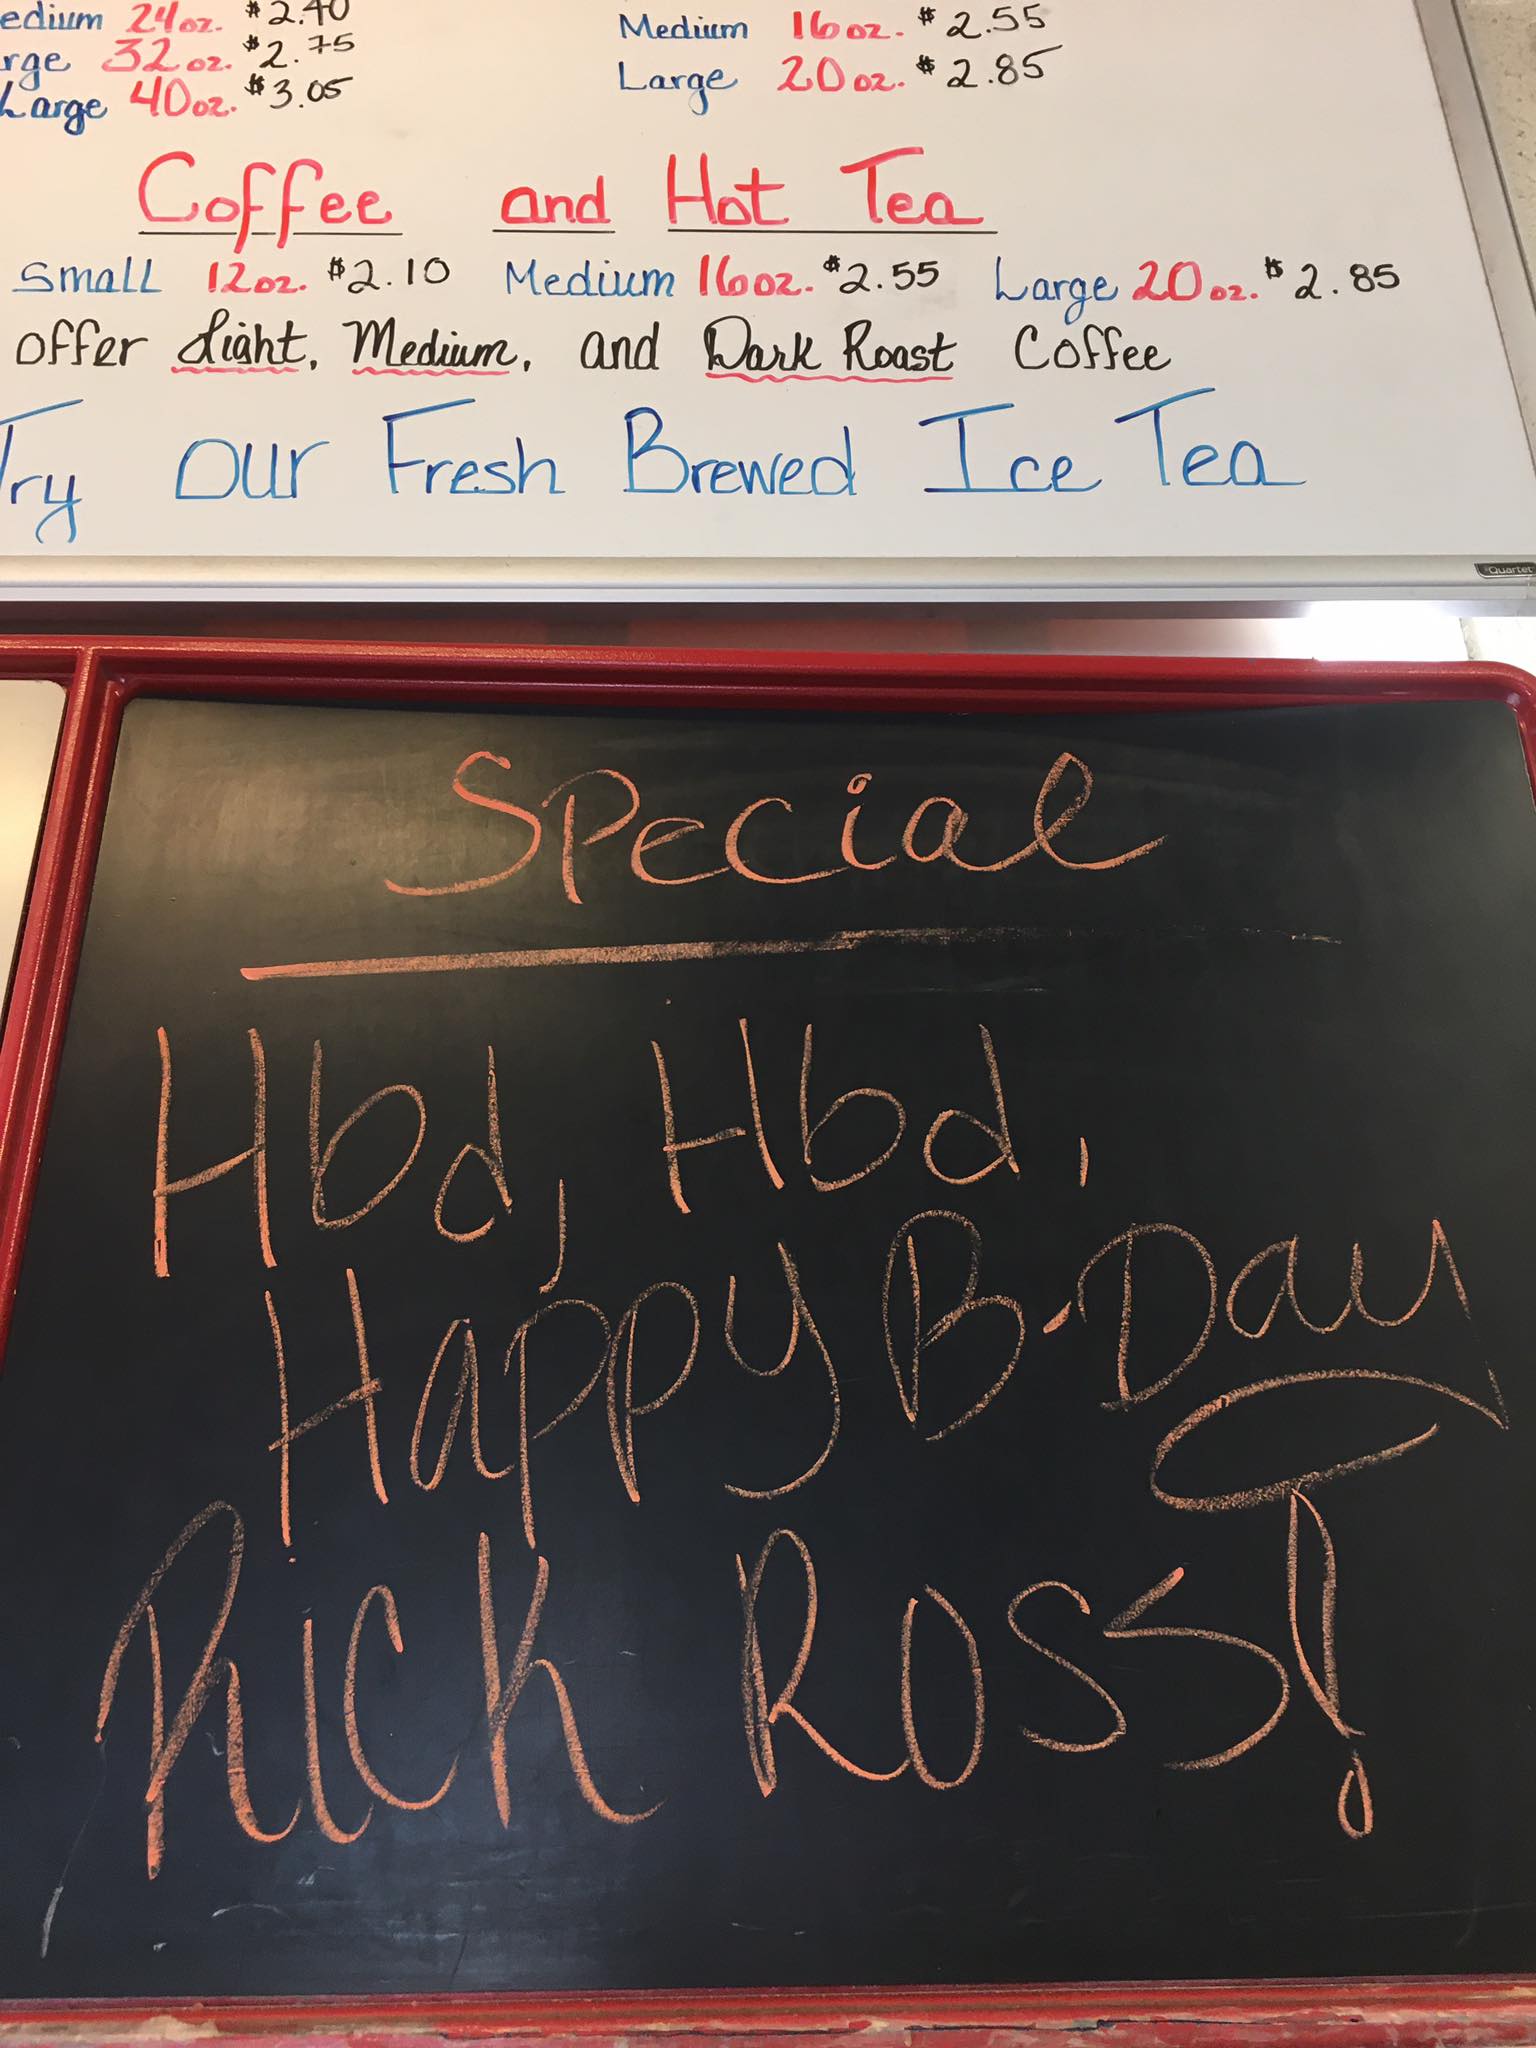 edium 24oz. $2.40
rge 32oz. $2.75
Large 40oz. $3.05
Medium 16oz. $2.55
Large 20oz. $2.85
Coffee and Hot Tea
Small 12oz. $2.10 Medium 16oz. $2.55 Large 20oz. $2.85
offer Light, Medium, and Dark Roast Coffee
Try Our Fresh Brewed Ice Tea
Quartet
Special
Hbd, Hbd,
Happy B-Day
Rick Ross!